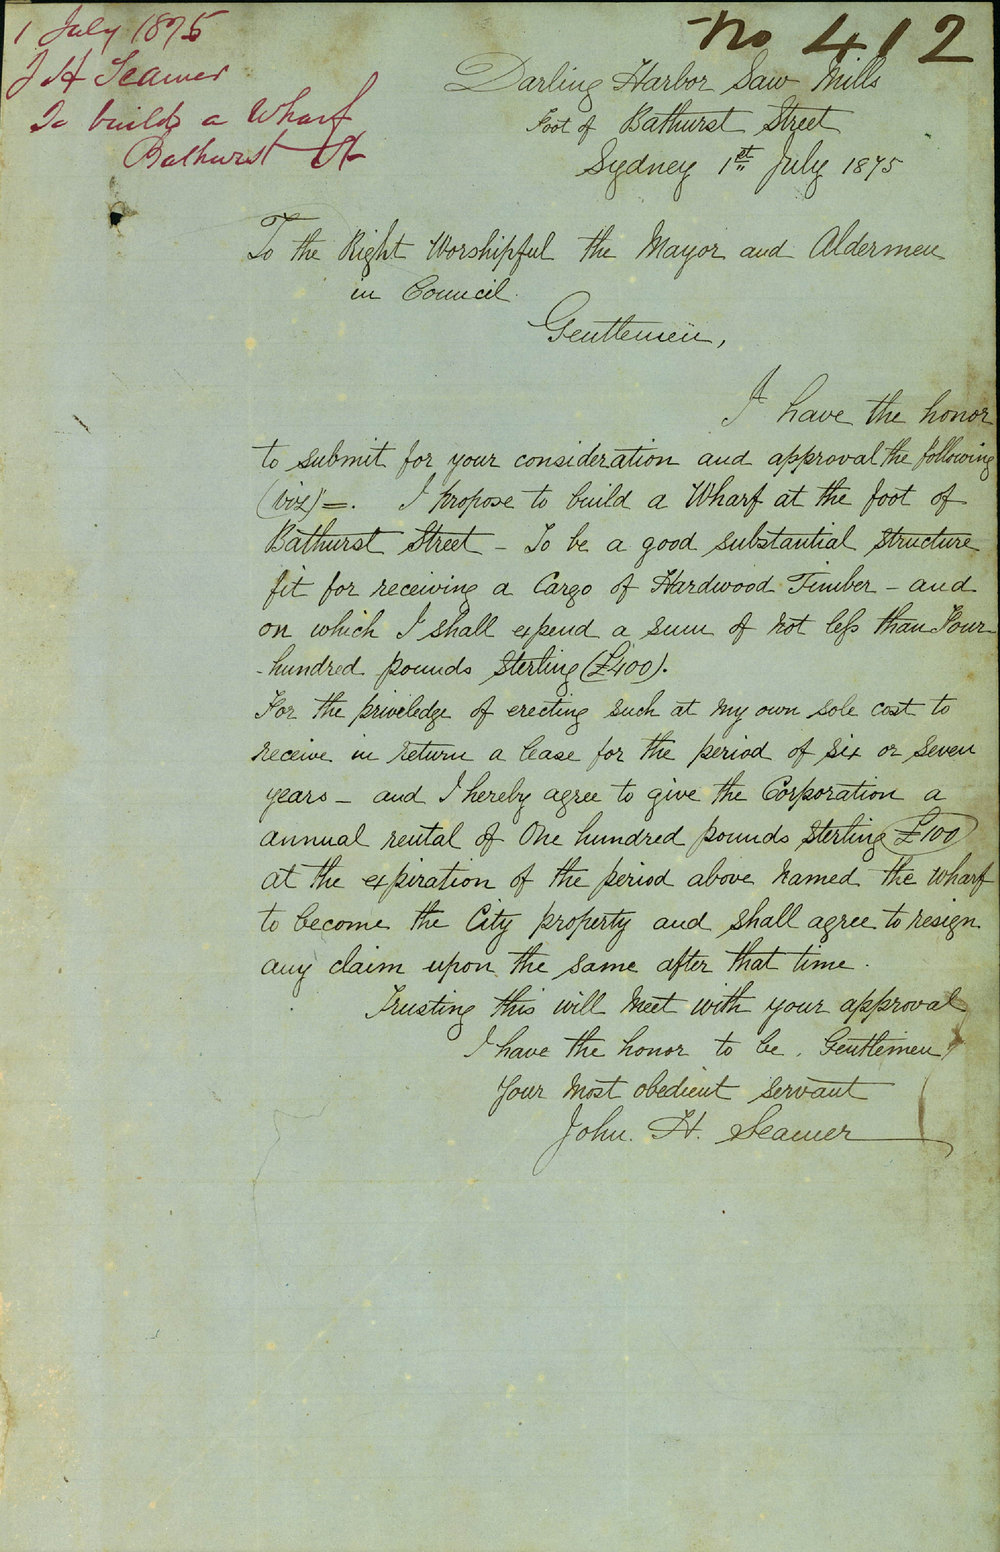 1 July 1875
J H Seamer
To build a Wharf
Bathurst St
No 412
Darling Harbor Saw Mills
Foot of Bathurst Street
Sydney 1st July 1875
To the Right Worshipful the Mayor and Aldermen
in Council.
Gentlemen,
I have the honor
to submit for your consideration and approval the following
(viz) =. I propose to build a Wharf at the foot of
Bathurst Street – To be a good substantial structure
fit for receiving a Cargo of Hardwood Timber – and
on which I shall expend a sum of not less than Four
-hundred pounds Sterling (£400).
For the priveledge of erecting such at my own sole cost to
receive in return a lease for the period of six or seven
years – and I hereby agree to give the Corporation a
annual rental of One hundred pounds Sterling £100
at the expiration of the period above named the wharf
to become the City property and shall agree to resign
any claim upon the same after that time.
Trusting this will meet with your approval
I have the honor to be. Gentlemen
Your most obedient servant
John. H. Seamer